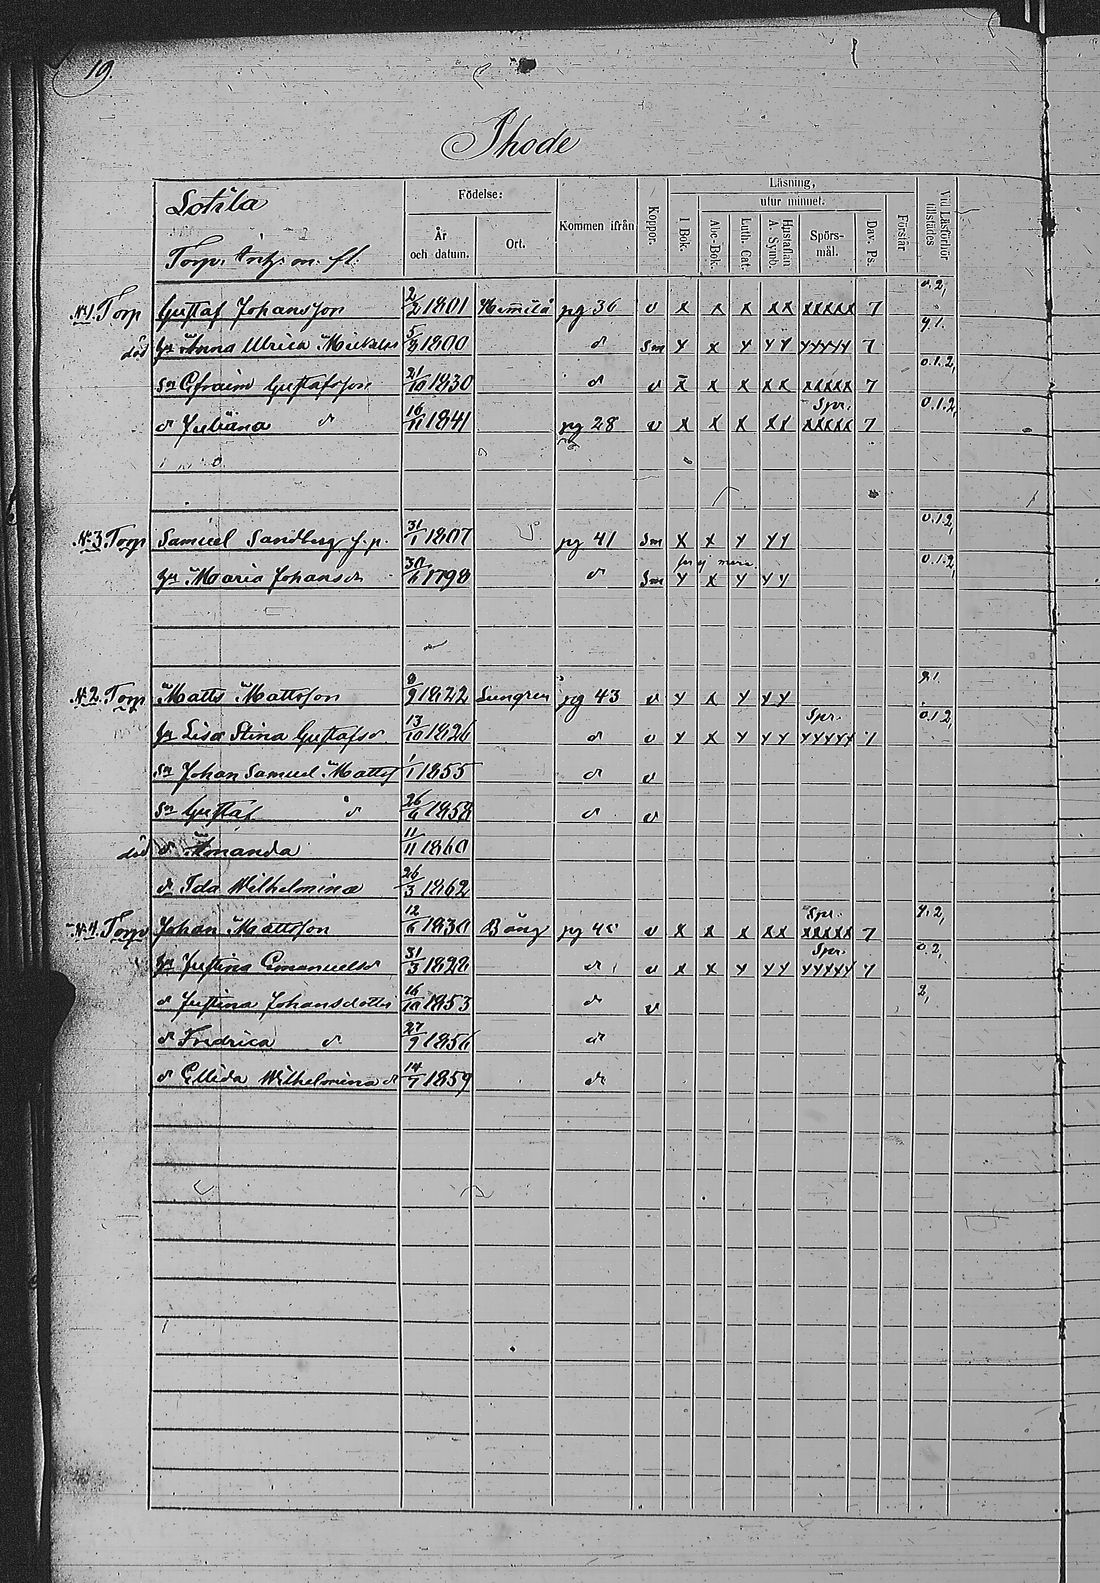 19.
Thode
Lotila
Torp. Inh. m. fl.
Födelse:
År och datum.
Ort.
Kommen ifrån
Koppor.
Läsning,
utur minnet.
I Bok.
Abc-Bok.
Luth. Cat.
Hustaflan A. Symb.
Spörs-mål.
Dav. Ps.
Förstår
Vid Läsförhör tillstädes
0.2,
No 1. Torp Gustaf Johansson 2/2 1801 Himilä pg 36 v x x x xx xxxxx 7
9 1.
död hu Anna Ulrica Mickels 5/9 1800 d Sm y x y yy yyyyy 7
0.1.2,
sn Efraim Gustafsson 21/10 1830 d v x x x xx xxxxx 7
Spr. 0.1.2,
dr Juliana d 16/11 1841 pg 28 v x x x xx xxxxx 7
0.1.2,
No 3 Torp Samuel Sandberg f.p. 31/1 1807 pg 41 Sm x x y yy
0.1.2,
hu Maria Johansdr 30/6 1798 d Sm y x y yy
No 2. Torp Matts Mattsson 9/9 1822 Lungren pg 43 v y x y yy
Spr. 0.1.2,
hu Lisa Stina Gustafsd. 13/10 1826 d v y x y yy yyyyy 7
sn Johan Samuel Matts 1/1 1855 d v
sn Gustaf d 26/6 1858 d v
död dr Amanda 11/11 1860
dr Ida Wilhelmina 26/3 1862
Spr. 9.2,
No 4. Torp Johan Mattsson 12/6 1830 Bång pg 45 v x x x xx xxxxx 7
Spr. 0.2,
hu Justina Emanuelsdr 31/3 1828 d v x x y yy yyyyy 7
2,
dr Justina Johansdotter 16/10 1853 d v
dr Fredrica d 27/9 1856 d
dr Ellida Wilhelmina d 14/7 1859 d